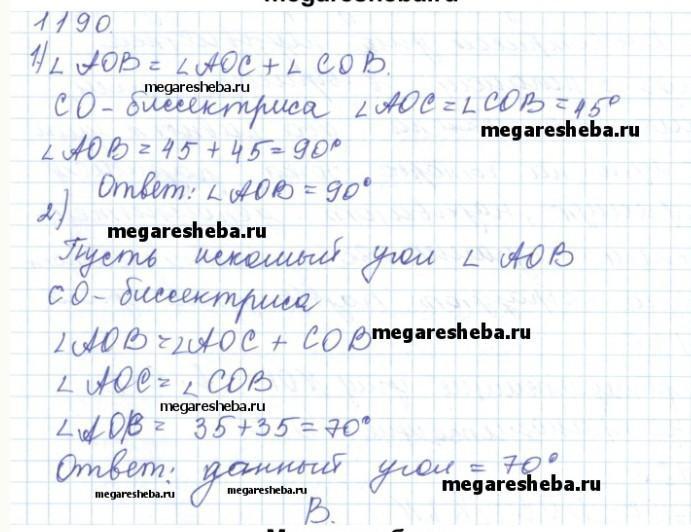 megaresheba.ru
1190.
1) ∠ AOB = ∠AOC + ∠ COB.
megaresheba.ru
CO - биссектриса ∠ AOC = ∠ COB = 45°
megaresheba.ru
∠AOB = 45 + 45 = 90°
Ответ: ∠AOB = 90°
2)
megaresheba.ru
Пусть искомый угол ∠ AOB
CO - биссектриса
∠AOB = ∠AOC + COB
megaresheba.ru
∠ AOC = ∠ COB
megaresheba.ru
∠AOB = 35+35 = 70°
Ответ: данный угол = 70°
megaresheba.ru
megaresheba.ru
megaresheba.ru
В.